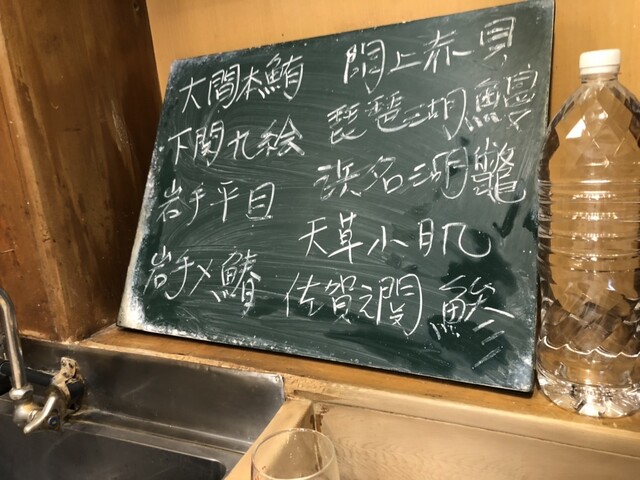 大間本鮪
下関九絵
岩手平目
岩手〆鰆
閖上赤貝
琵琶湖鰻
浜名湖鼈
天草小肌
佐賀之関鯵